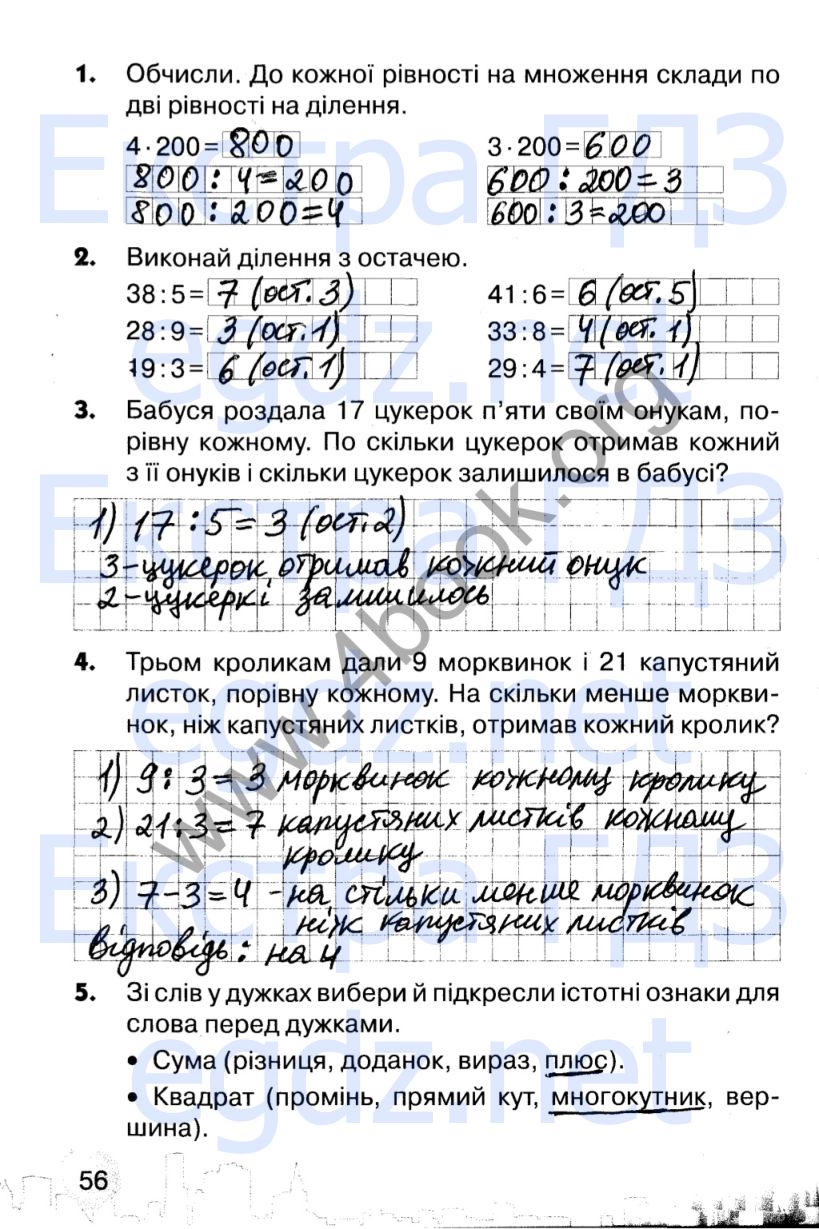 1. Обчисли. До кожної рівності на множення склади по
дві рівності на ділення.
4 · 200 = 800
800 : 4 = 200
800 : 200 = 4
3 · 200 = 600
600 : 200 = 3
600 : 3 = 200
2. Виконай ділення з остачею.
38 : 5 = 7 (ост. 3)
28 : 9 = 3 (ост. 1)
19 : 3 = 6 (ост. 1)
41 : 6 = 6 (ост. 5)
33 : 8 = 4 (ост. 1)
29 : 4 = 7 (ост. 1)
3. Бабуся роздала 17 цукерок п’яти своїм онукам, по-
рівну кожному. По скільки цукерок отримав кожний
з її онуків і скільки цукерок залишилося в бабусі?
1) 17 : 5 = 3 (ост. 2)
3 – цукерок отримав кожний онук
2 – цукеркі залишилось
4. Трьом кроликам дали 9 морквинок і 21 капустяний
листок, порівну кожному. На скільки менше моркви-
нок, ніж капустяних листків, отримав кожний кролик?
1) 9 : 3 = 3 морквинок кожному кролику
2) 21 : 3 = 7 капустяних листків кожному
кролику
3) 7 – 3 = 4 – на стільки менше морквинок
ніж капустяних листків
Відповідь: на 4
5. Зі слів у дужках вибери й підкресли істотні ознаки для
слова перед дужками.
• Сума (різниця, доданок, вираз, плюс).
• Квадрат (промінь, прямий кут, многокутник, вер-
шина).
56
Екстра ГДЗ
egdz.net
Екстра ГДЗ
egdz.net
Екстра ГДЗ
egdz.net
www.4book.org